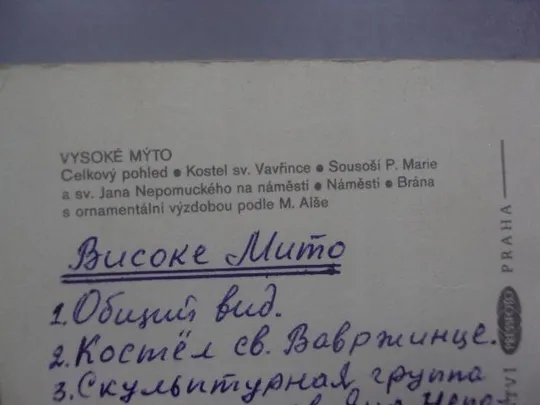 VYSOKÉ MÝTO
Celkový pohled ● Kostel sv. Vavřince ● Sousoší P. Marie
a sv. Jana Nepomuckého na náměstí ● Náměstí ● Brána
s ornamentální výzdobou podle M. Alše
Високе Мито
1. Общий вид.
2. Костёл св. Вавржинце.
3. Скульптурная группа
PRAHA